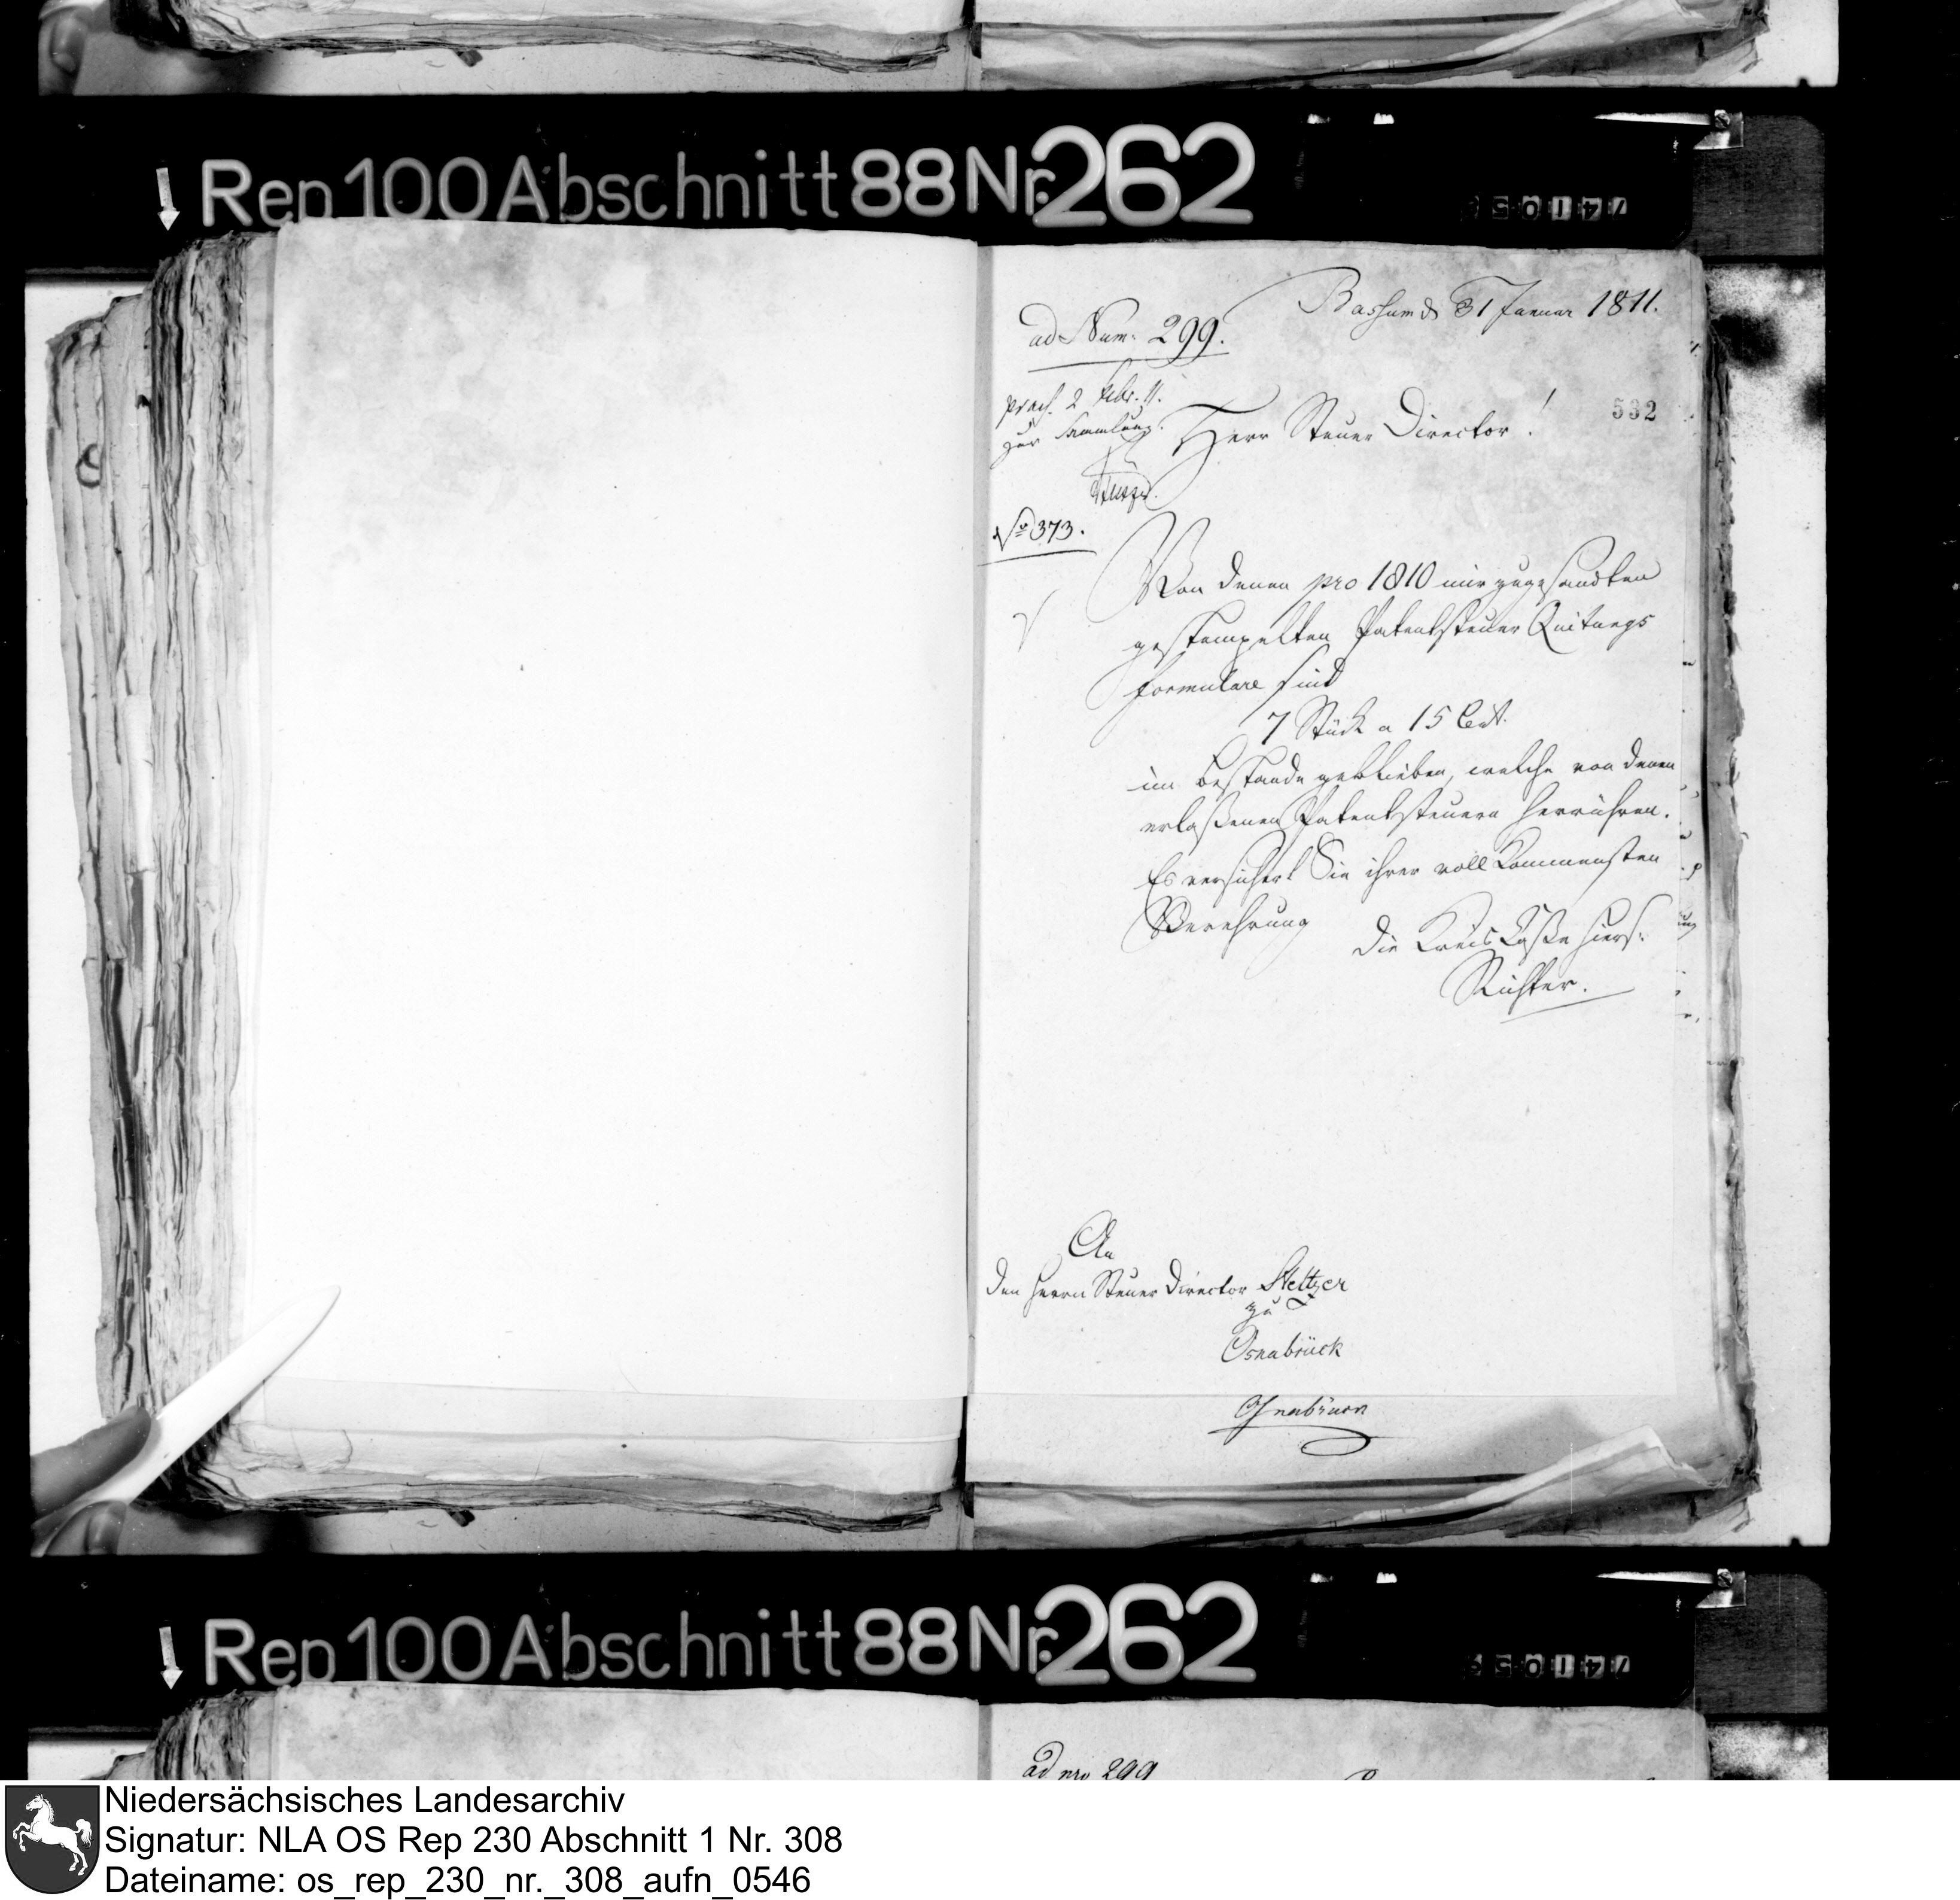 Rep 100 Abschnitt 88 Nr. 262
Bassum d 31 Januar 1811.
ad Num: 299.
532
praes. 2 Febr. 11.
zur Sammlung.
Herr Steuer Director!
No 373.
Von denen pro 1810 mir zugesandten
gestempelten Patentsteuer Quitungs
formulare sind
7 Stück a 15 Cent.
im Bestande geblieben, welche von denen
erlaßenen Patentsteuern herrühren.
Es versichert Sie ihrer vollkommensten
Verehrung
die Kreis Caße hies.
Richter.
An
den Herrn Steuer Director Steltzer
zu
Osnabrück
Osnabrück
Rep 100 Abschnitt 88 Nr. 262
ad nro 299
Niedersächsisches Landesarchiv
Signatur: NLA OS Rep 230 Abschnitt 1 Nr. 308
Dateiname: os_rep_230_nr._308_aufn_0546